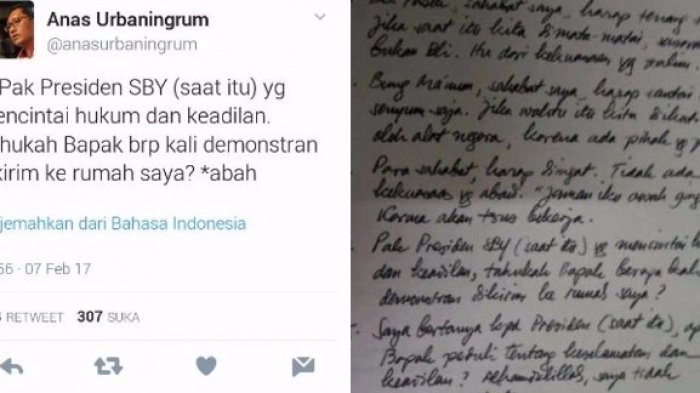 Anas Urbaningrum
@anasurbaningrum
Pak Presiden SBY (saat itu) yg
encintai hukum dan keadilan.
hukah Bapak brp kali demonstran
kirim ke rumah saya? *abah
jemahkan dari Bahasa Indonesia
56 · 07 Feb 17
RETWEET 307 SUKA
sahabat saya, harap tenang
Jika saat itu kita dimata-matai,
bukan Eli. Itu dari kekuasaan yg zalim.
Bung Ma'mun, sahabat saya, harap santai
senyum saja. Jika waktu itu kita
oleh alat negara, karena ada pihak yg
Para sahabat, harap diingat. Tidak ada
kekuasaan yg abadi. "Jaman iku owah
Karma akan terus bekerja.
Pak Presiden SBY (saat itu) yg mencintai
dan keadilan, tahukah Bapak berapa kali
demonstran dikirim ke rumah saya?
Saya bertanya kpd Presiden (saat itu),
Bapak peduli tentang keselamatan dan
keadilan? Alhamdulillah, saya tidak